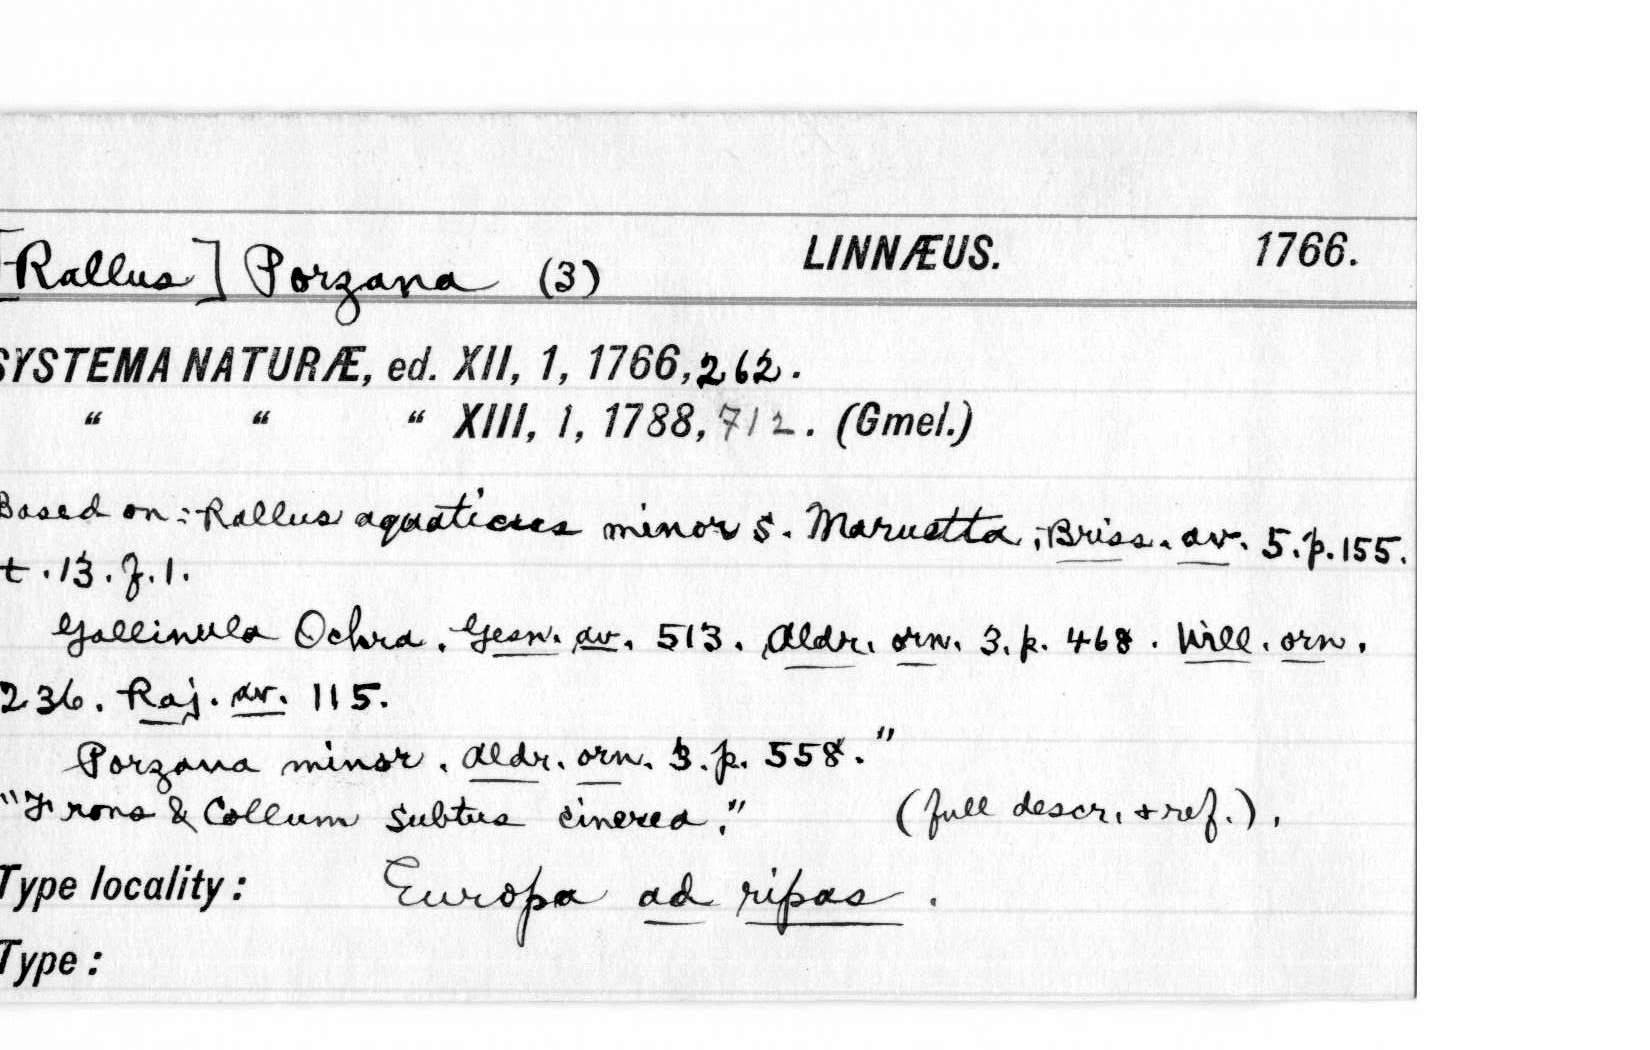 [Rallus] Porzana (3) LINNÆUS. 1766.
SYSTEMA NATURÆ, ed. XII, 1, 1766, 262.
“ “ “ XIII, 1, 1788, 712. (Gmel.)
Based on :- Rallus aquaticus minor s. Maruetta, Briss. av. 5. p. 155.
t. 13. f. 1.
Gallinula Ochra. Gesn. av. 513. Aldr. orn. 3. p. 468. Will. orn.
236. Raj. av. 115.
Porzana minor. Aldr. orn. 3. p. 558."
"Frons & Collum subtus cinerea." (full descr. + ref.).
Type locality: Europa ad ripas.
Type: